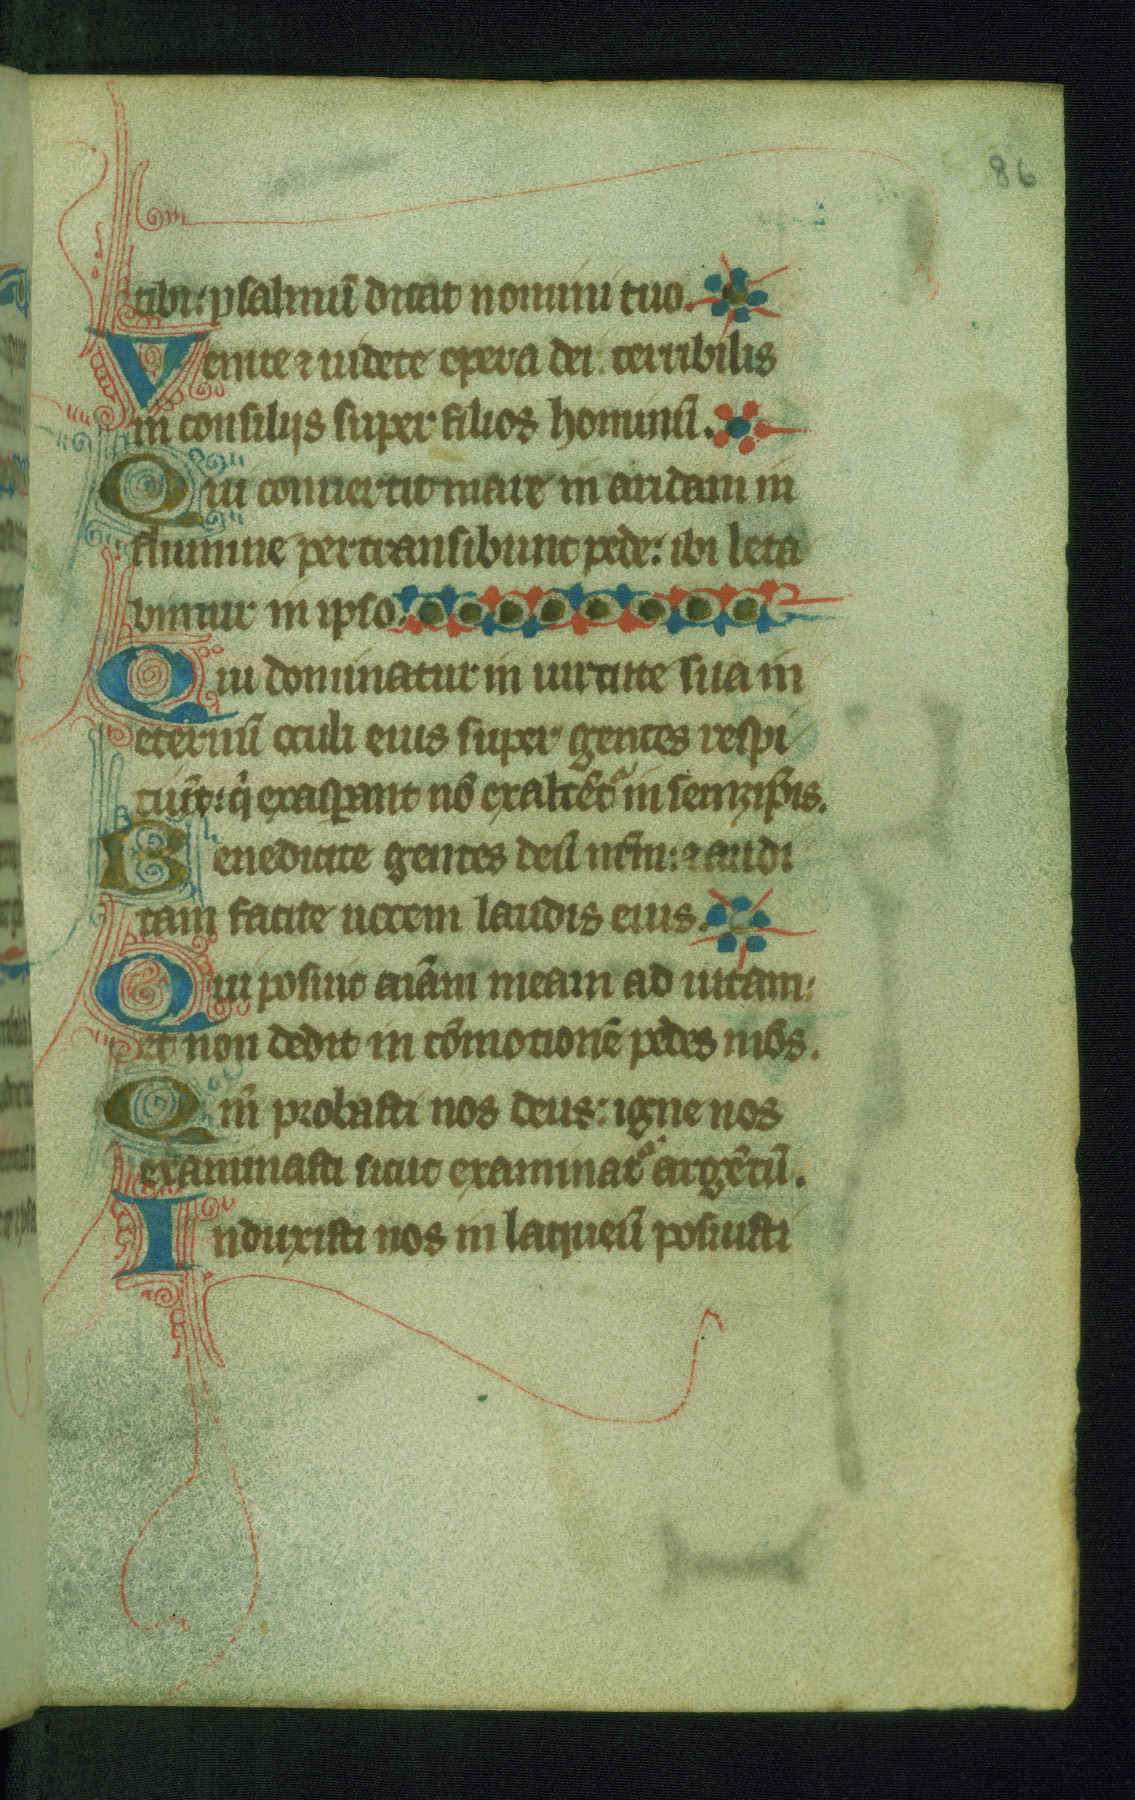 86
tibi: psalmū dicat nomini tuo.
Venite ⁊ uidete opera dei. terribilis
in consilijs super filios hominū.
Qui conuertit mare in aridam in
flumine pertransibunt pede: ibi leta
bimur in ipso.
Qui dominatur in uirtute sua in
eternū oculi eius super gentes respi
ciūt: q̄i exaspant nō exaltēt᷑ in semꝫipīs.
Benedicite gentes deū nr̄m: ⁊ audi
tam facite uocem laudis eius.
Qui posuit aīam meam ad uitam:
et non dedit in cōmotionē pedes mōs.
Qm̄ probasti nos deus: igne nos
examinasti sicut examinat᷑ argētū.
Induxisti nos in laqueū posuisti